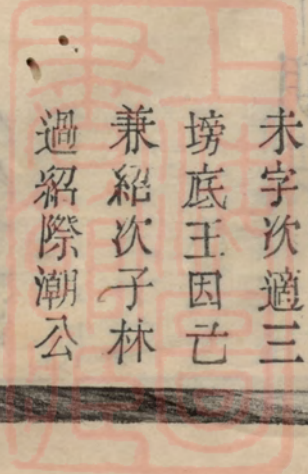 未字次適三
塝底王因亡
兼紹次子林
過紹際潮公